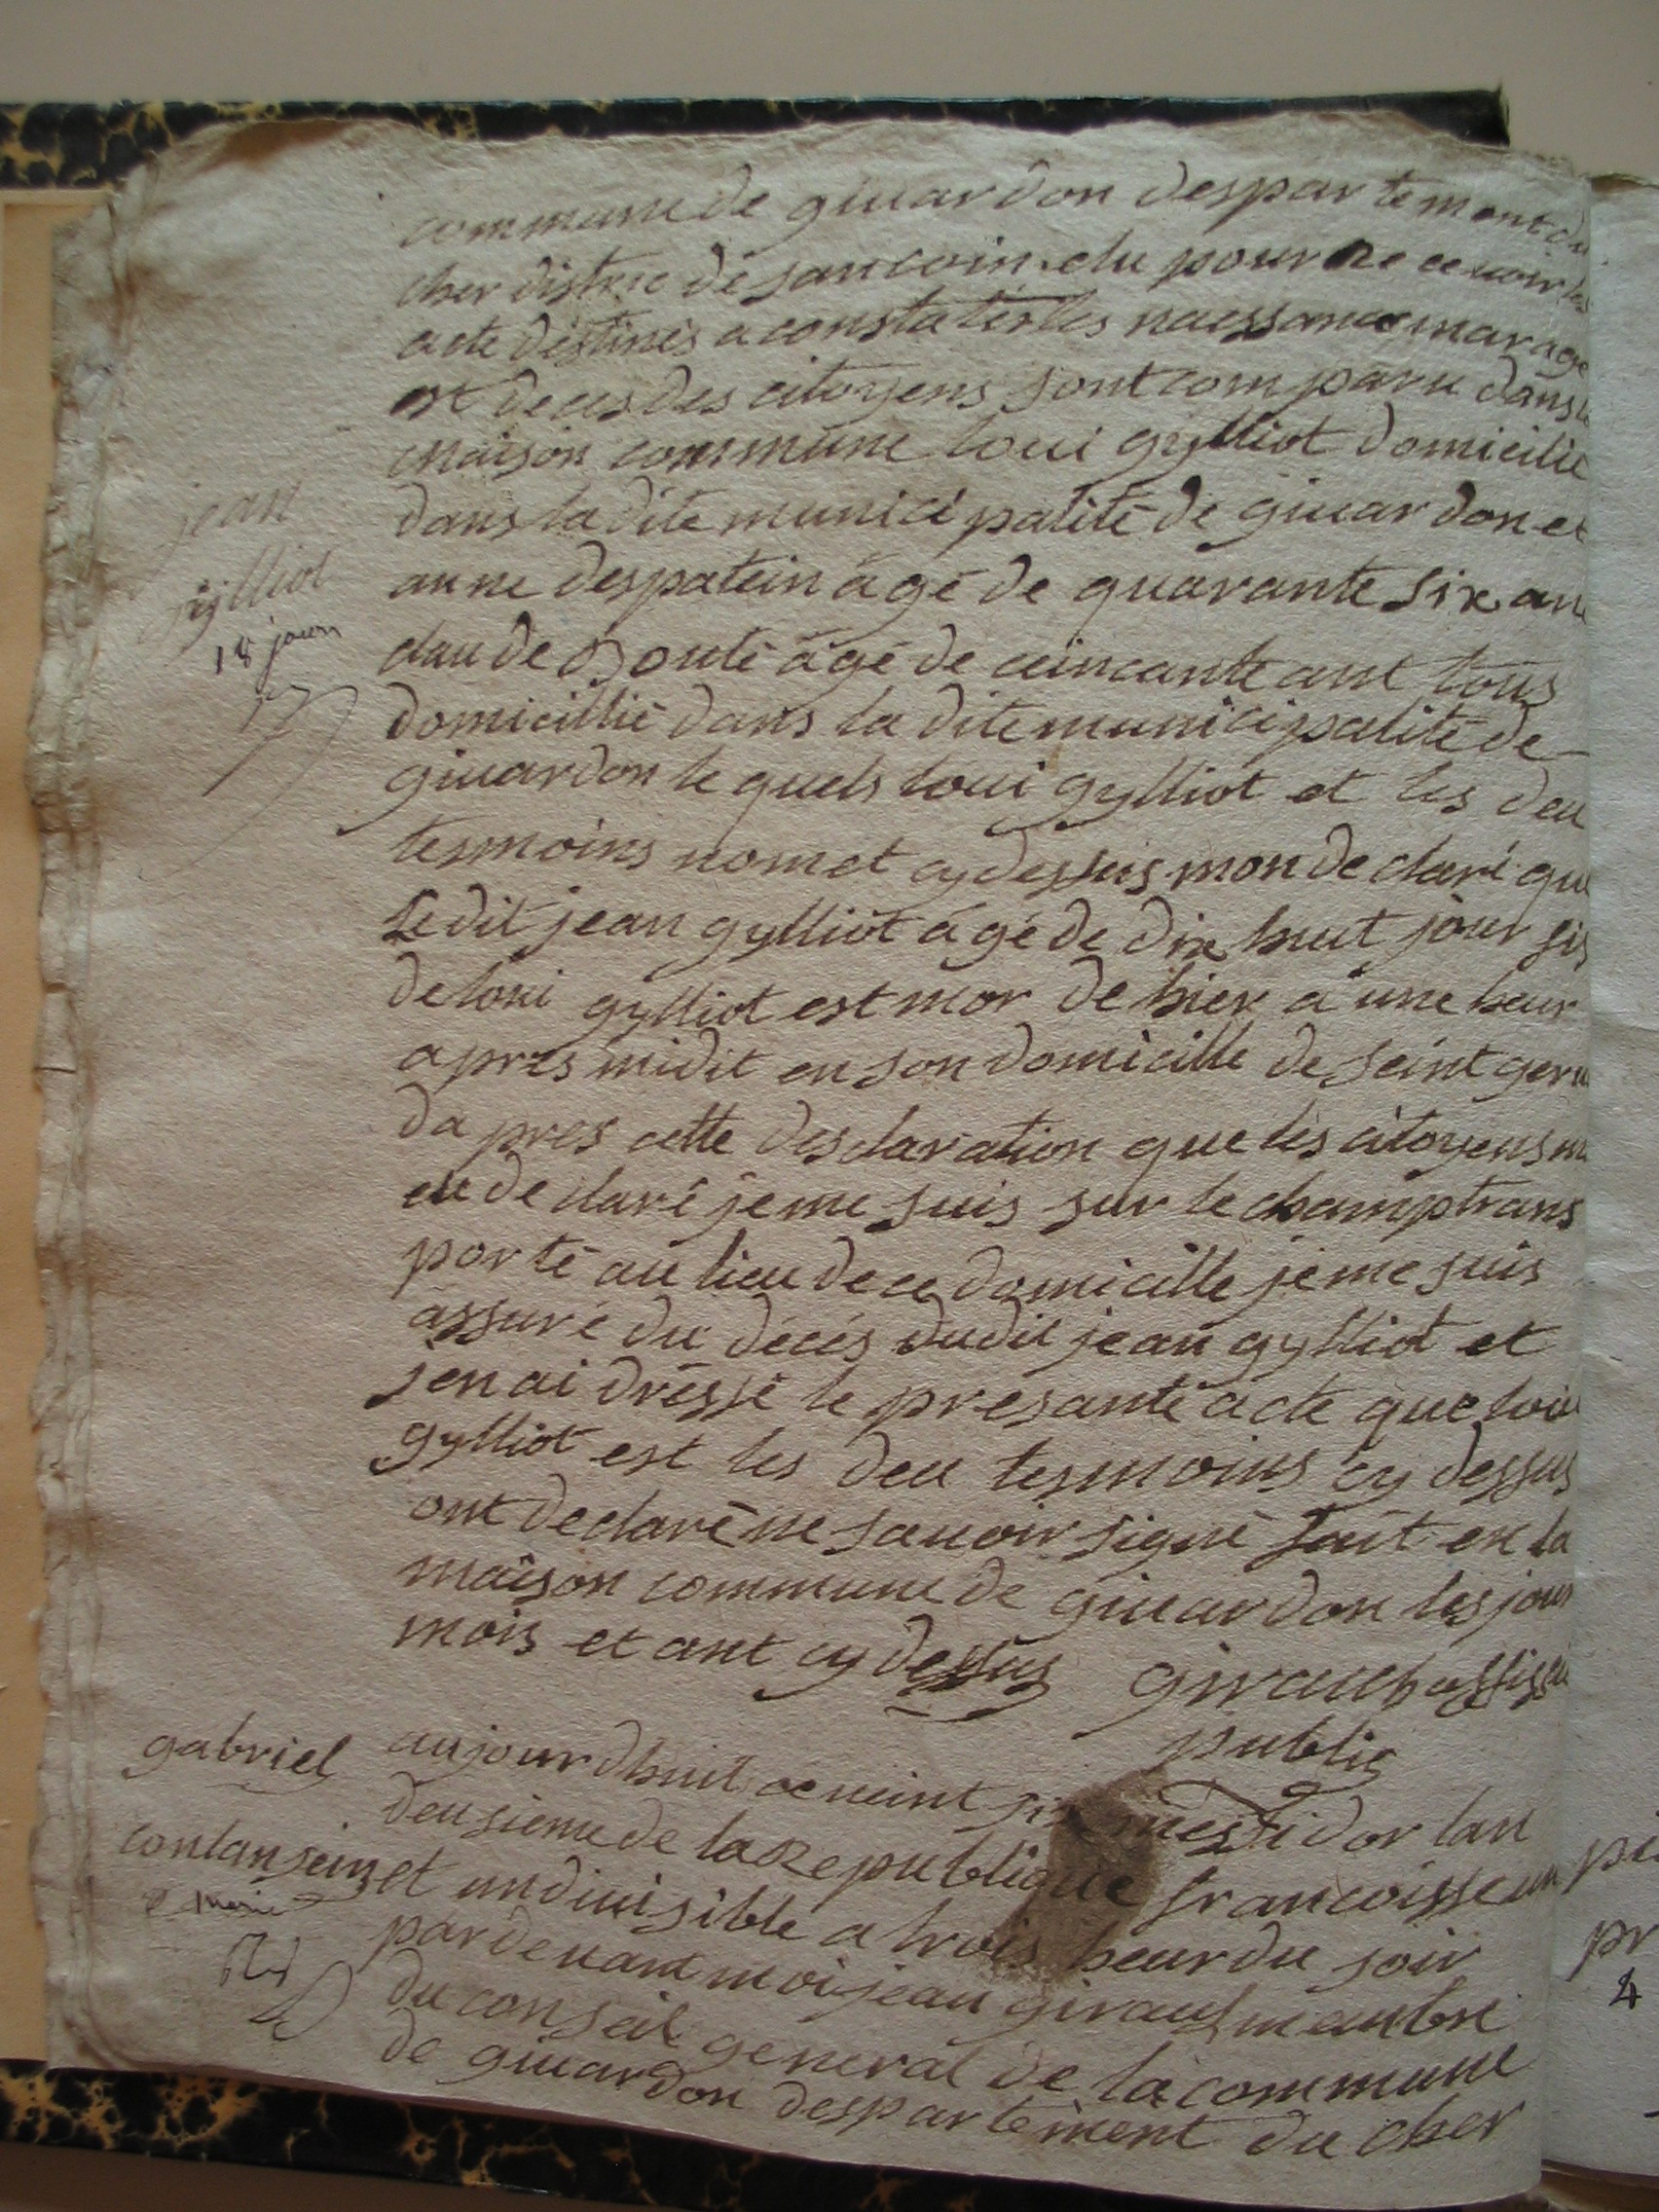 commune de giuardon despartement du
cher distric de sancoin elu pour Receuoir les
acte destinés a constater les naessance marage
et deces des citoyens sont comparu dans la
maison commune loui gylliot domicilié
dans la dite municipalité de giuardon et
anne despatein âgé de quarante six an
claude agé de ceincante ant tous
domicillié dans la dite municipalité de
giuardon le quels loui gylliot et les deu
tesmoins nomet cy dessus mon declaré que
le dit jean gylliot agé de dix huit jour fis
de loui gylliot est mor de hier a une heur
apres midit en son domicille de seint
dapres cette desclaration que les citoyens m
declaré je me suis sur le champ trans
porté au lieu de ce domicille je me suis
assuré du décés dudit jean gylliot et
jen ai dressé le presante acte que loui
gylliot est les deu tesmoins cy dessus
ont declaré ne sauoir signé fait en la
maison commune de giuardon les jour
mois et ant cy dessus giraud
public
jean
gylliot
18 jours
gabriel
aujourdhuit ce veint six messidor lan
deusieme de la Republique francoisse un
et undiuisible a trois heur du soir
pardeuant moi jean giraud membre
du conseil general de la commune
de giuardon despartement du cher
4